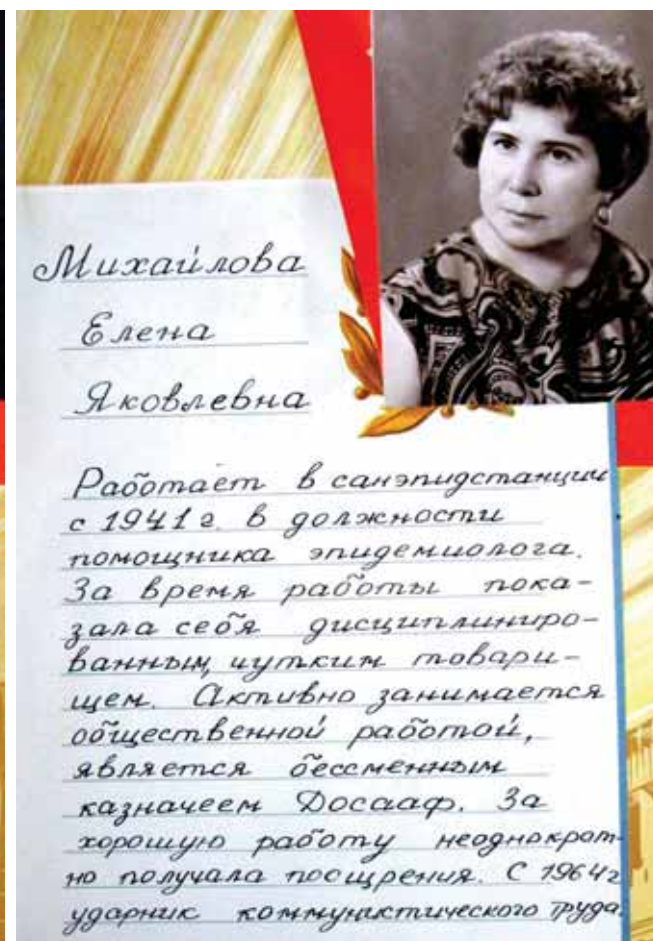 Михайлова
Елена
Яковлевна
Работает в санэпидстанции
с 1941 г. в должности
помощника эпидемиолога.
За время работы пока-
зала себя дисциплиниро-
ванным, чутким товари-
щем. Активно занимается
общественной работой,
является бессменным
казначеем Досааф. За
хорошую работу неоднократ-
но получала поощрения. С 1964 г
ударник коммунистического труда.